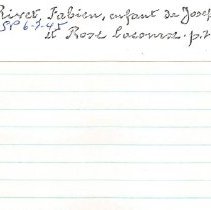 Rivet, Fabien, enfant de Josep
SP 6-7-45
et Rose Lacourse. p.2